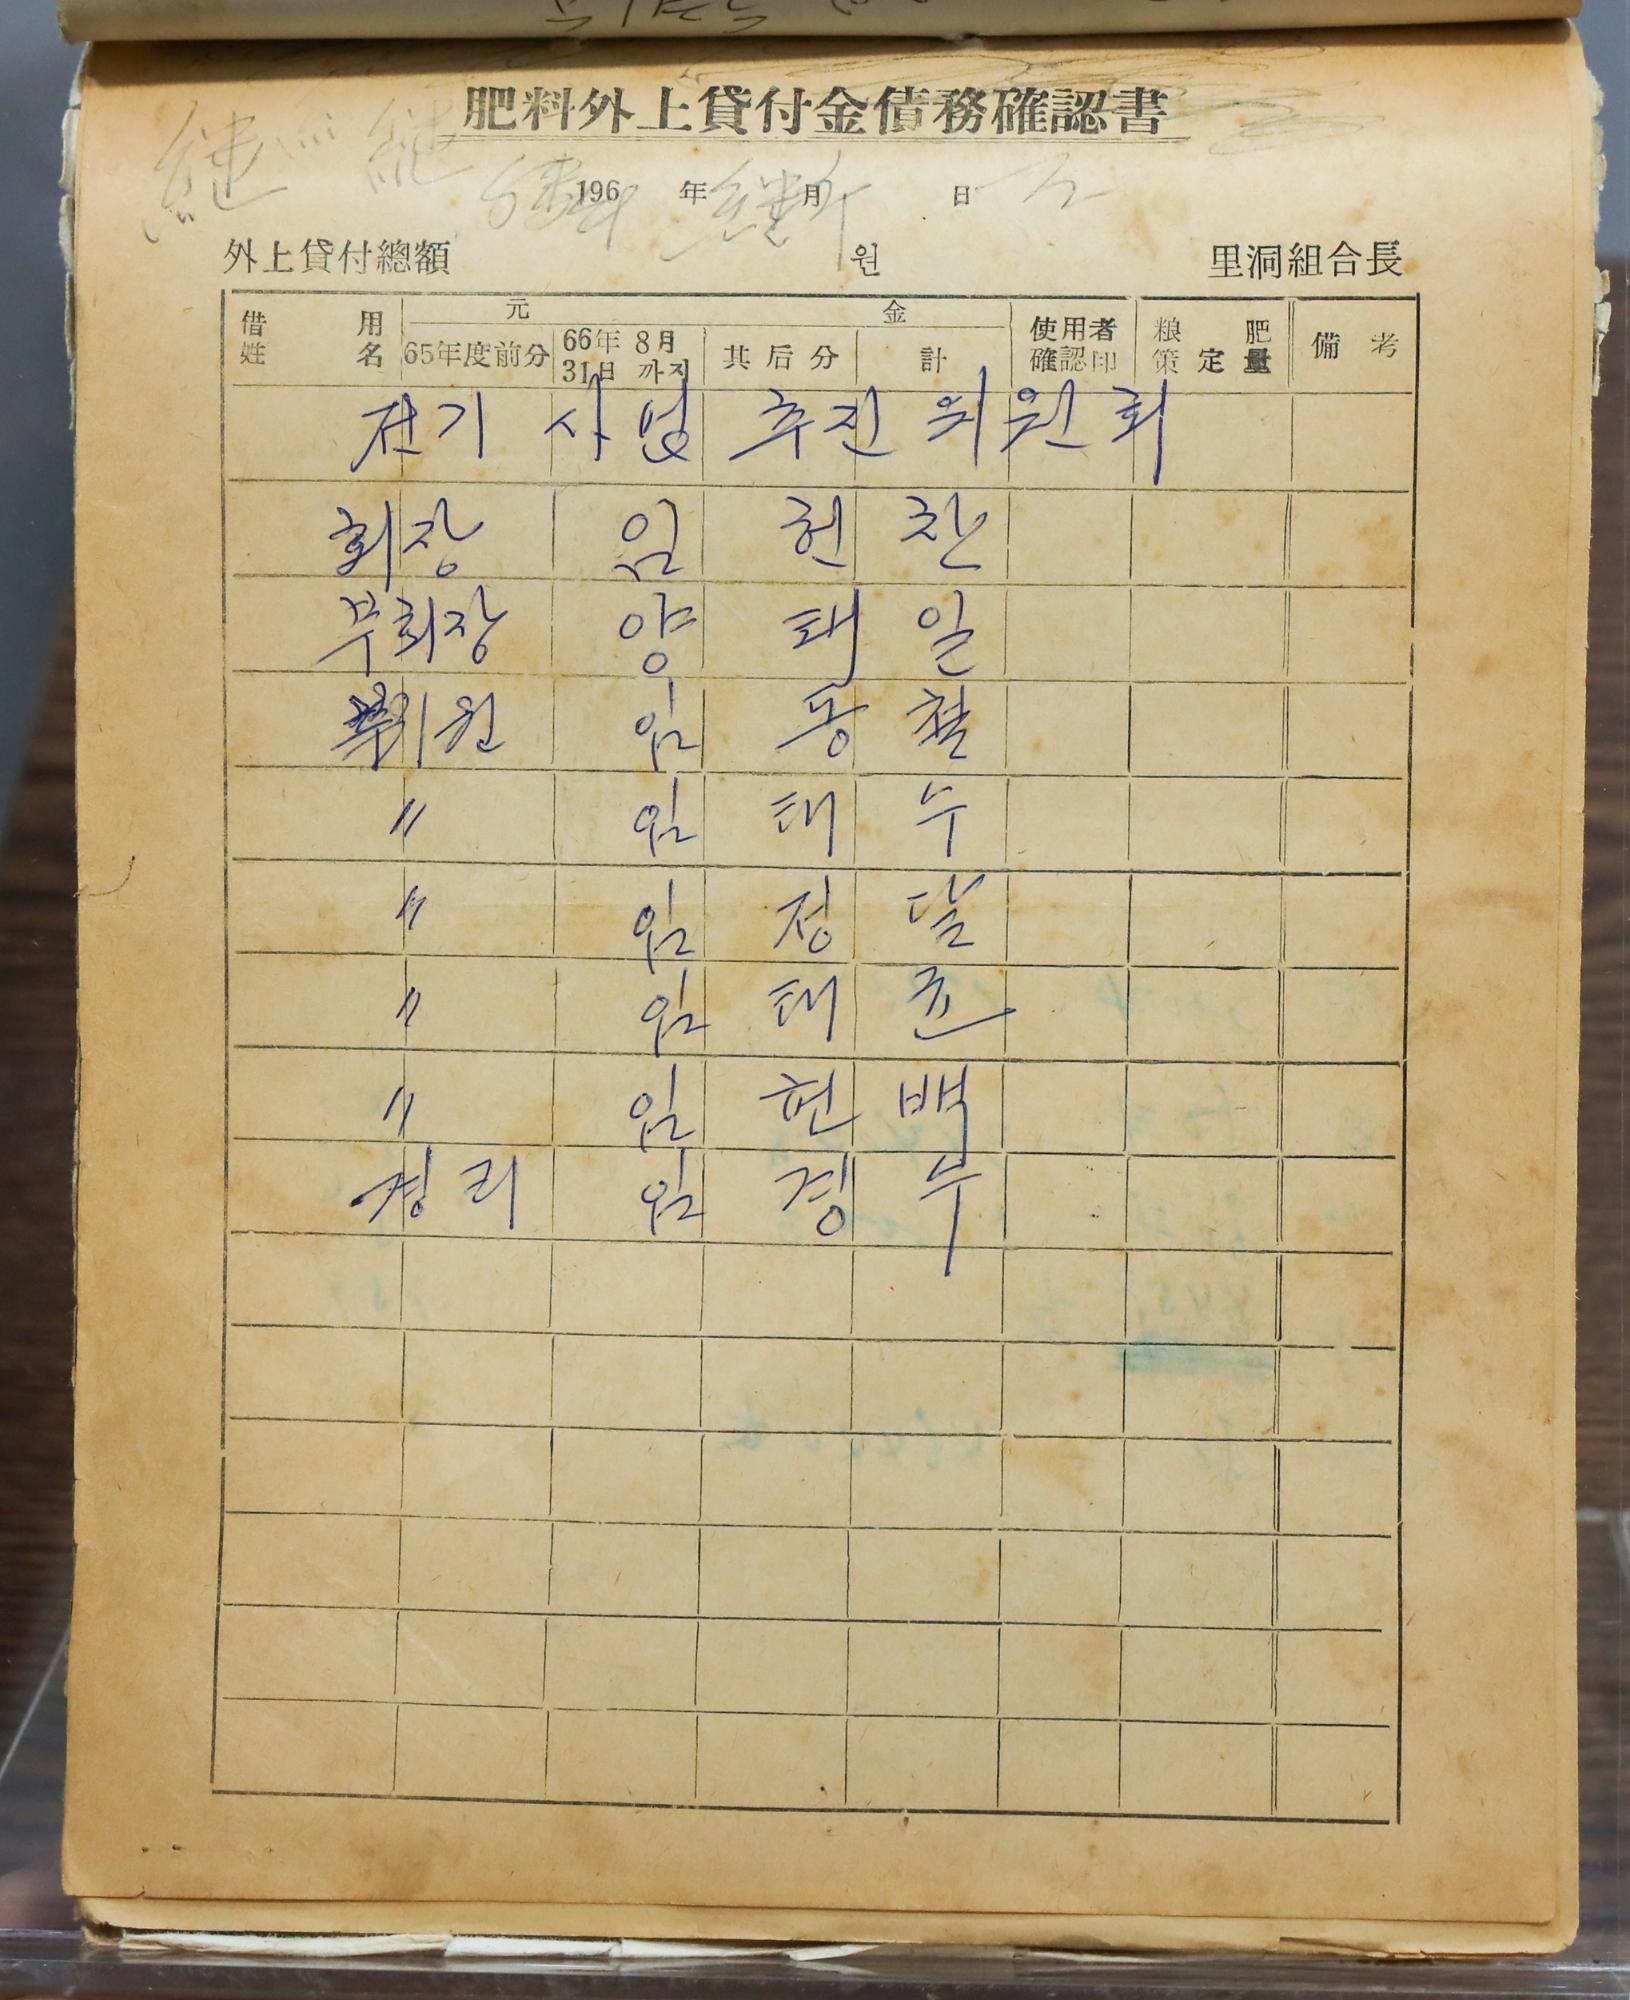 肥料外上貸付金債務確認書
196 年 月 日
外上貸付總額 원 里洞組合長
借用姓名 元金 使用者確認印 粮肥策定量 備考
65年度前分 66年8月31日까지 其后分 計
전기 사업 추진 위원회
회장 임 헌 찬
부회장 양 태 일
위원 임 동 철
〃 임 태 수
〃 임 정 달
〃 임 태 균
〃 임 헌 백
경리 임 경 수